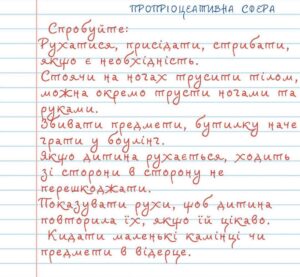 ПРОПРІОЦЕАТИВНА СФЕРА
Спробуйте:
Рухатися, присідати, стрибати,
якщо є необхідність.
Стоячи на ногах трусити тілом,
можна окремо трусти ногами та
руками.
Збивати предмети, бутилку наче
грати у боулінг.
Якщо дитина рухається, ходить
зі сторони в сторону не
перешкоджати.
Показувати рухи, щоб дитина
повторила їх, якщо їй цікаво.
Кидати маленькі камінці чи
предмети в відерце.